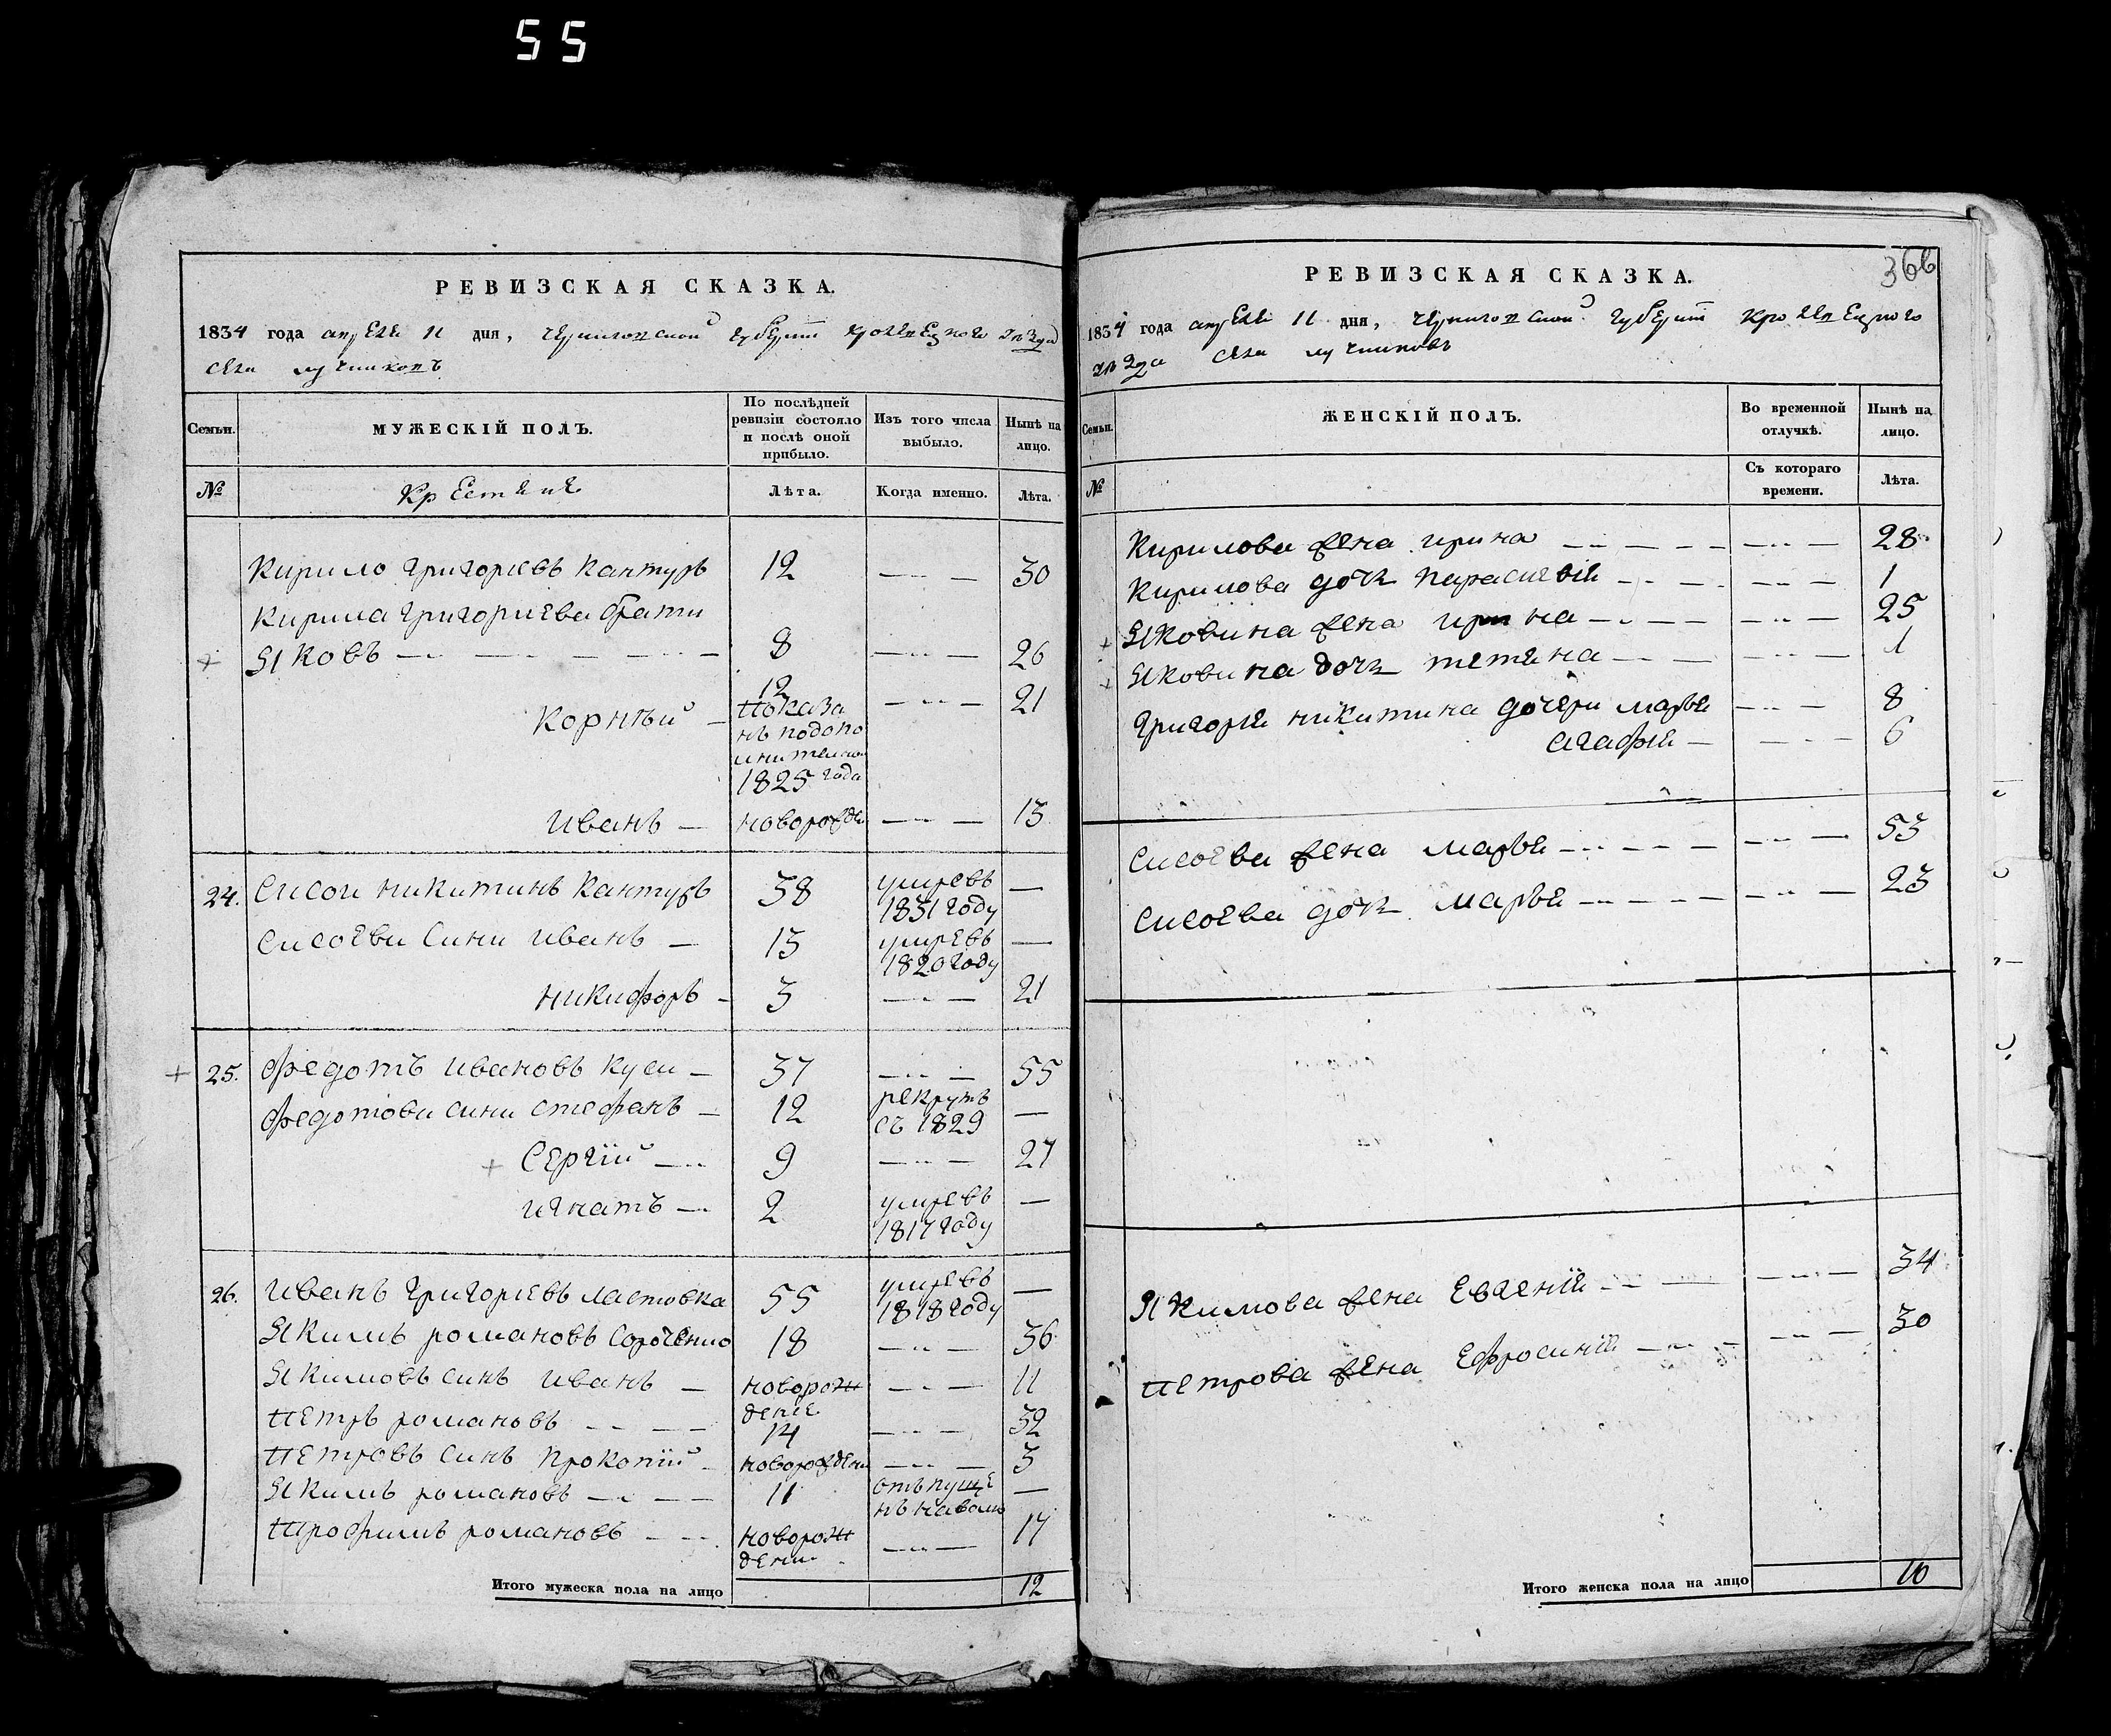 55
РЕВИЗСКАЯ СКАЗКА.
1834 года апреля 11 дня, черниговской губерніи кролевецкого уезда
села лучниковъ
Семьи.
МУЖЕСКІЙ ПОЛЪ.
По послѣдней ревизіи состояло и послѣ оной прибыло.
Изъ того числа выбыло.
Нынѣ на лицо.
№
Крестяне
Лѣта.
Когда именно.
Лѣта.
Кирило григориевъ кантуръ 12 — 30
Кирила григориева брати
Яковъ — 8 — 26
Корнѣй — 12 — 21
показа
нъ подопо
лнителной
1825 года
иванъ — новорожден — 13
24. Сисои никитинъ кантуръ 38 умревъ —
1831 году
Сисоеви сини иванъ — 13 умревъ —
1820 году
никифоръ — 3 — 21
25. федотъ ивановъ куси — 37 — 55
федотови сини стефанъ — 12 рекрутъ —
съ 1829
Сергїй — 9 — 27
игнатъ — 2 умревъ —
1817 году
26. иванъ григориевъ ластовка 55 умревъ —
1818 году
Якимъ романовъ сороченко 18 — 36
Якимовъ синъ иванъ — новорож — 11
дение
петръ романовъ — 14 — 32
петровъ синъ прокопїй — новорожден — 3
Якимъ романовъ — 11 отъпуще —
нъ наволю
трофимъ романовъ — новорож — 17
дени
Итого мужеска пола на лицо 12
366
РЕВИЗСКАЯ СКАЗКА.
1834 года апреля 11 дня, черниговской губерніи кролевецкого
уезда села лучниковъ
Семьи.
ЖЕНСКІЙ ПОЛЪ.
Во временной отлучкѣ.
Нынѣ на лицо.
№
Съ котораго времени.
Лѣта.
Кирилова жена ирина — 28
Кирилова дочъ параскевія — 1
Яковина жена ирина — 25
Яковина дочъ тетяна — 1
григория никитина дочери марья — 8
агафия — 6
Сисоева жена марья — 53
Сисоева дочъ марья — 23
Якимова жена евгения — 34
петрова жена ефросиния — 30
Итого женска пола на лицо 10